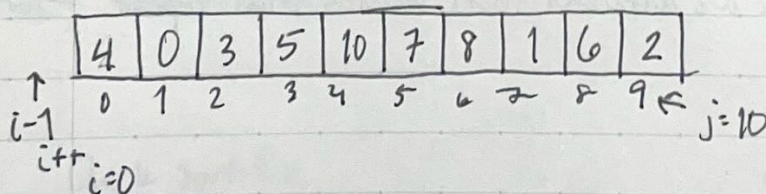 4 0 3 5 10 7 8 1 6 2
0 1 2 3 4 5 6 7 8 9 ← j=10
↑
i-1
i++ i=0